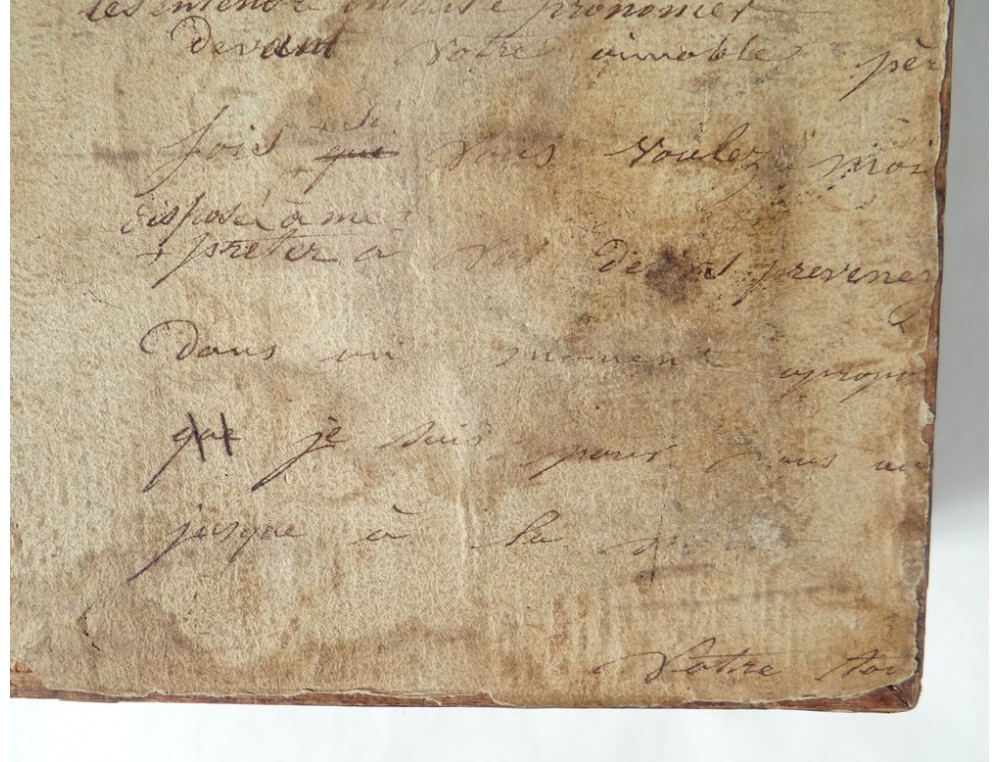 les entendre ensuite prononcer
devant votre aimable pèr
si
fois qui vous voulez moi
disposée à me
+ preter a vos desirs prevenez
Dans un moment apropo
que je suis pour vous
jusque à la
Votre